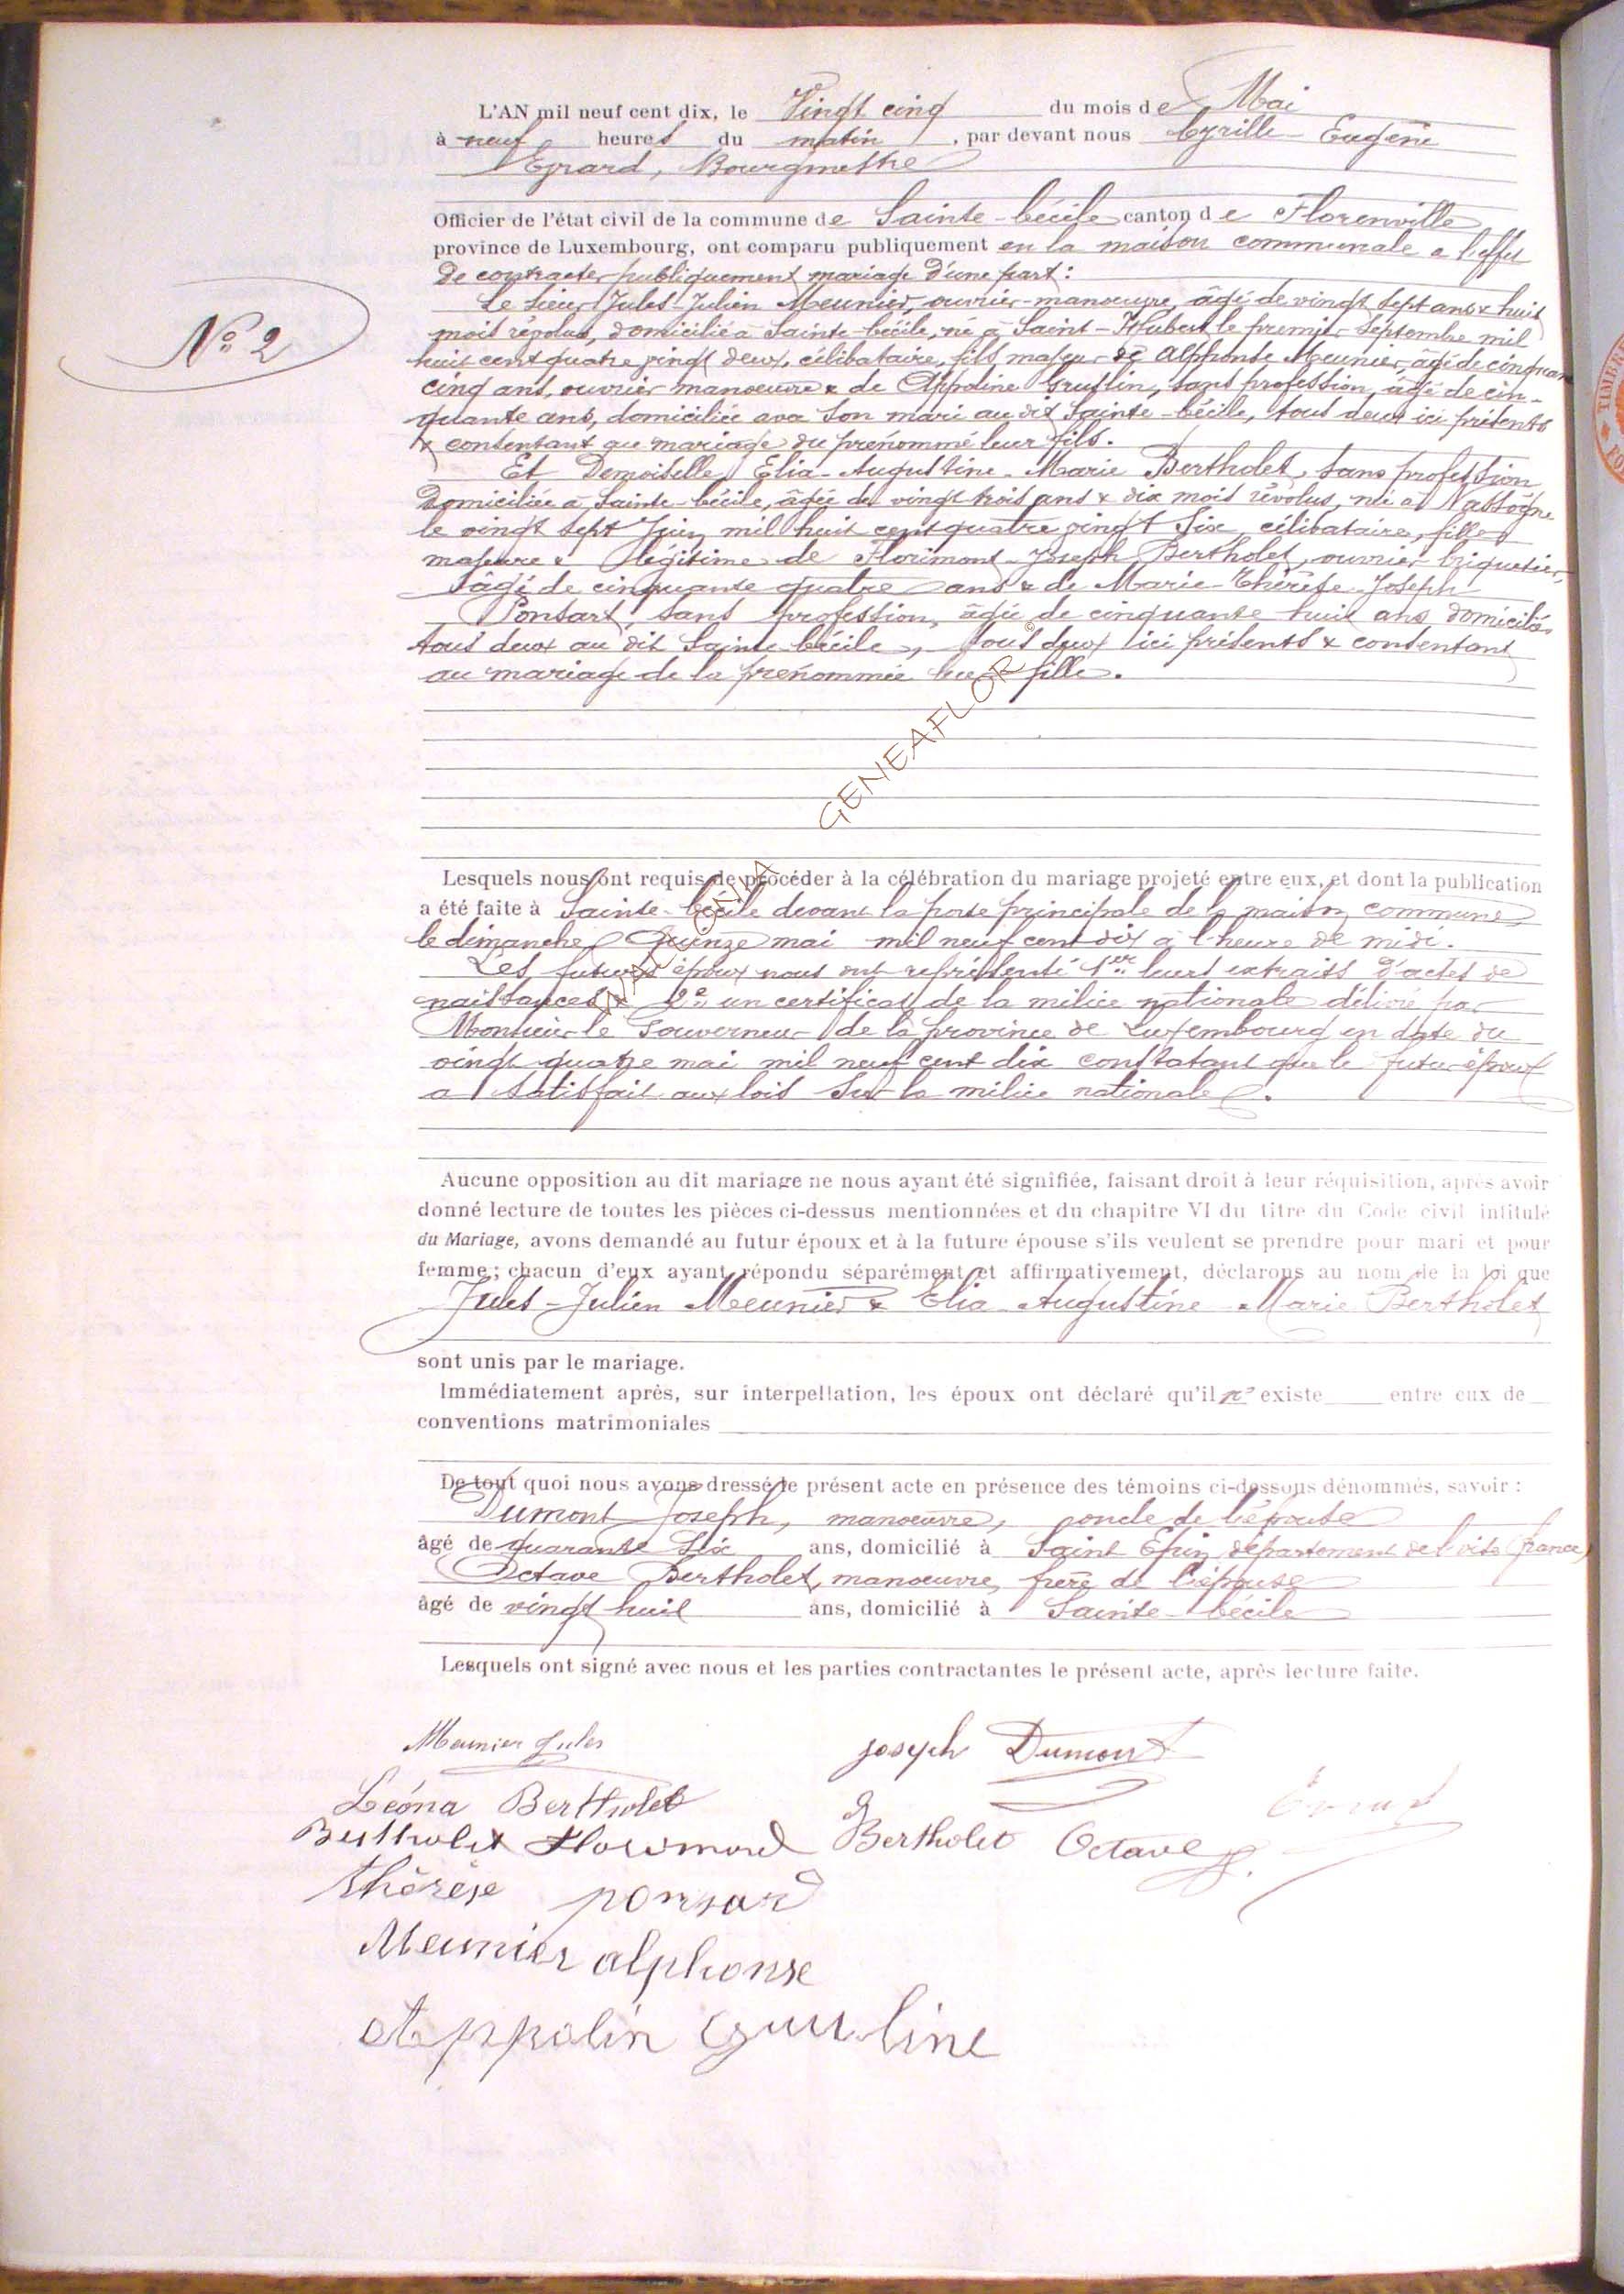 L'AN mil neuf cent dix, le Vingt cinq du mois de Mai
à neuf heures du matin, par devant nous Cyrille Eugène
Evrard, Bourgmestre
Officier de l'état civil de la commune de Sainte-Cécile canton de Florenville
province de Luxembourg, ont comparu publiquement en la maison communale a l'effet
de contracter publiquement mariage d'une part :
Le sieur Jules-Julien Meunier, ouvrier-manoeuvre, âgé de vingt sept ans & huit
mois révolus, domicilié à Sainte-Cécile, né à Saint-Hubert le premier Septembre mil
huit cent quatre vingt deux, célibataire, fils majeur de Alphonse Meunier, âgé de cinquante
cinq ans, ouvrier manoeuvre & de Appoline Gruslin, sans profession, âgée de cin-
quante ans, domiciliée avec son mari au dit Sainte-Cécile, tous deux ici présents
& consentant au mariage du prénommé leur fils.
Et Demoiselle Elia-Augustine-Marie Bertholet, sans profession
domiciliée à Sainte-Cécile, âgée de vingt trois ans & dix mois révolus, née à Nassogne
le vingt sept Juin mil huit cent quatre vingt six, célibataire, fille
majeure & légitime de Florimont-Joseph Bertholet, ouvrier briquetier,
âgé de cinquante quatre ans & de Marie-Thérèse-Joseph
Ponsart, sans profession, âgée de cinquante huit ans, domiciliés
tous deux au dit Sainte-Cécile, tous deux ici présents & consentant
au mariage de la prénommée leur fille.
© WALLONIA GENEAFLOR
N° 2
Lesquels nous ont requis de procéder à la célébration du mariage projeté entre eux, et dont la publication
a été faite à Sainte-Cécile devant la porte principale de la maison commune
le dimanche quinze mai mil neuf cent dix à l'heure de midi.
Les futurs époux nous ont représenté 1er leurs extraits d'actes de
naissances & 2e un certificat de la milice nationale délivré par
Monsieur le Gouverneur de la province de Luxembourg en date du
vingt quatre mai mil neuf cent dix constatant que le futur époux
a satisfait aux lois sur la milice nationale.
Aucune opposition au dit mariage ne nous ayant été signifiée, faisant droit à leur réquisition, après avoir
donné lecture de toutes les pièces ci-dessus mentionnées et du chapitre VI du titre du Code civil intitulé
du Mariage, avons demandé au futur époux et à la future épouse s'ils veulent se prendre pour mari et pour
femme ; chacun d'eux ayant répondu séparément et affirmativement, déclarons au nom de la loi que
Jules-Julien Meunier & Elia Augustine Marie Bertholet
sont unis par le mariage.
Immédiatement après, sur interpellation, les époux ont déclaré qu'il n' existe entre eux de
conventions matrimoniales
De tout quoi nous avons dressé le présent acte en présence des témoins ci-dessous dénommés, savoir :
Dumont Joseph, manoeuvre, oncle de l'épouse
âgé de quarante six ans, domicilié à Saint Epin département de l'oise (france)
Octave Bertholet, manoeuvre, frère de l'épouse
âgé de vingt huit ans, domicilié à Sainte-Cécile
Lesquels ont signé avec nous et les parties contractantes le présent acte, après lecture faite.
Meunier Jules
Joseph Dumont
Léona Bertholet
Evrard
Bertholet Florimond
Bertholet Octave
thérèse ponsard
Meunier alphonse
Appolin Grusline
TIMBRE